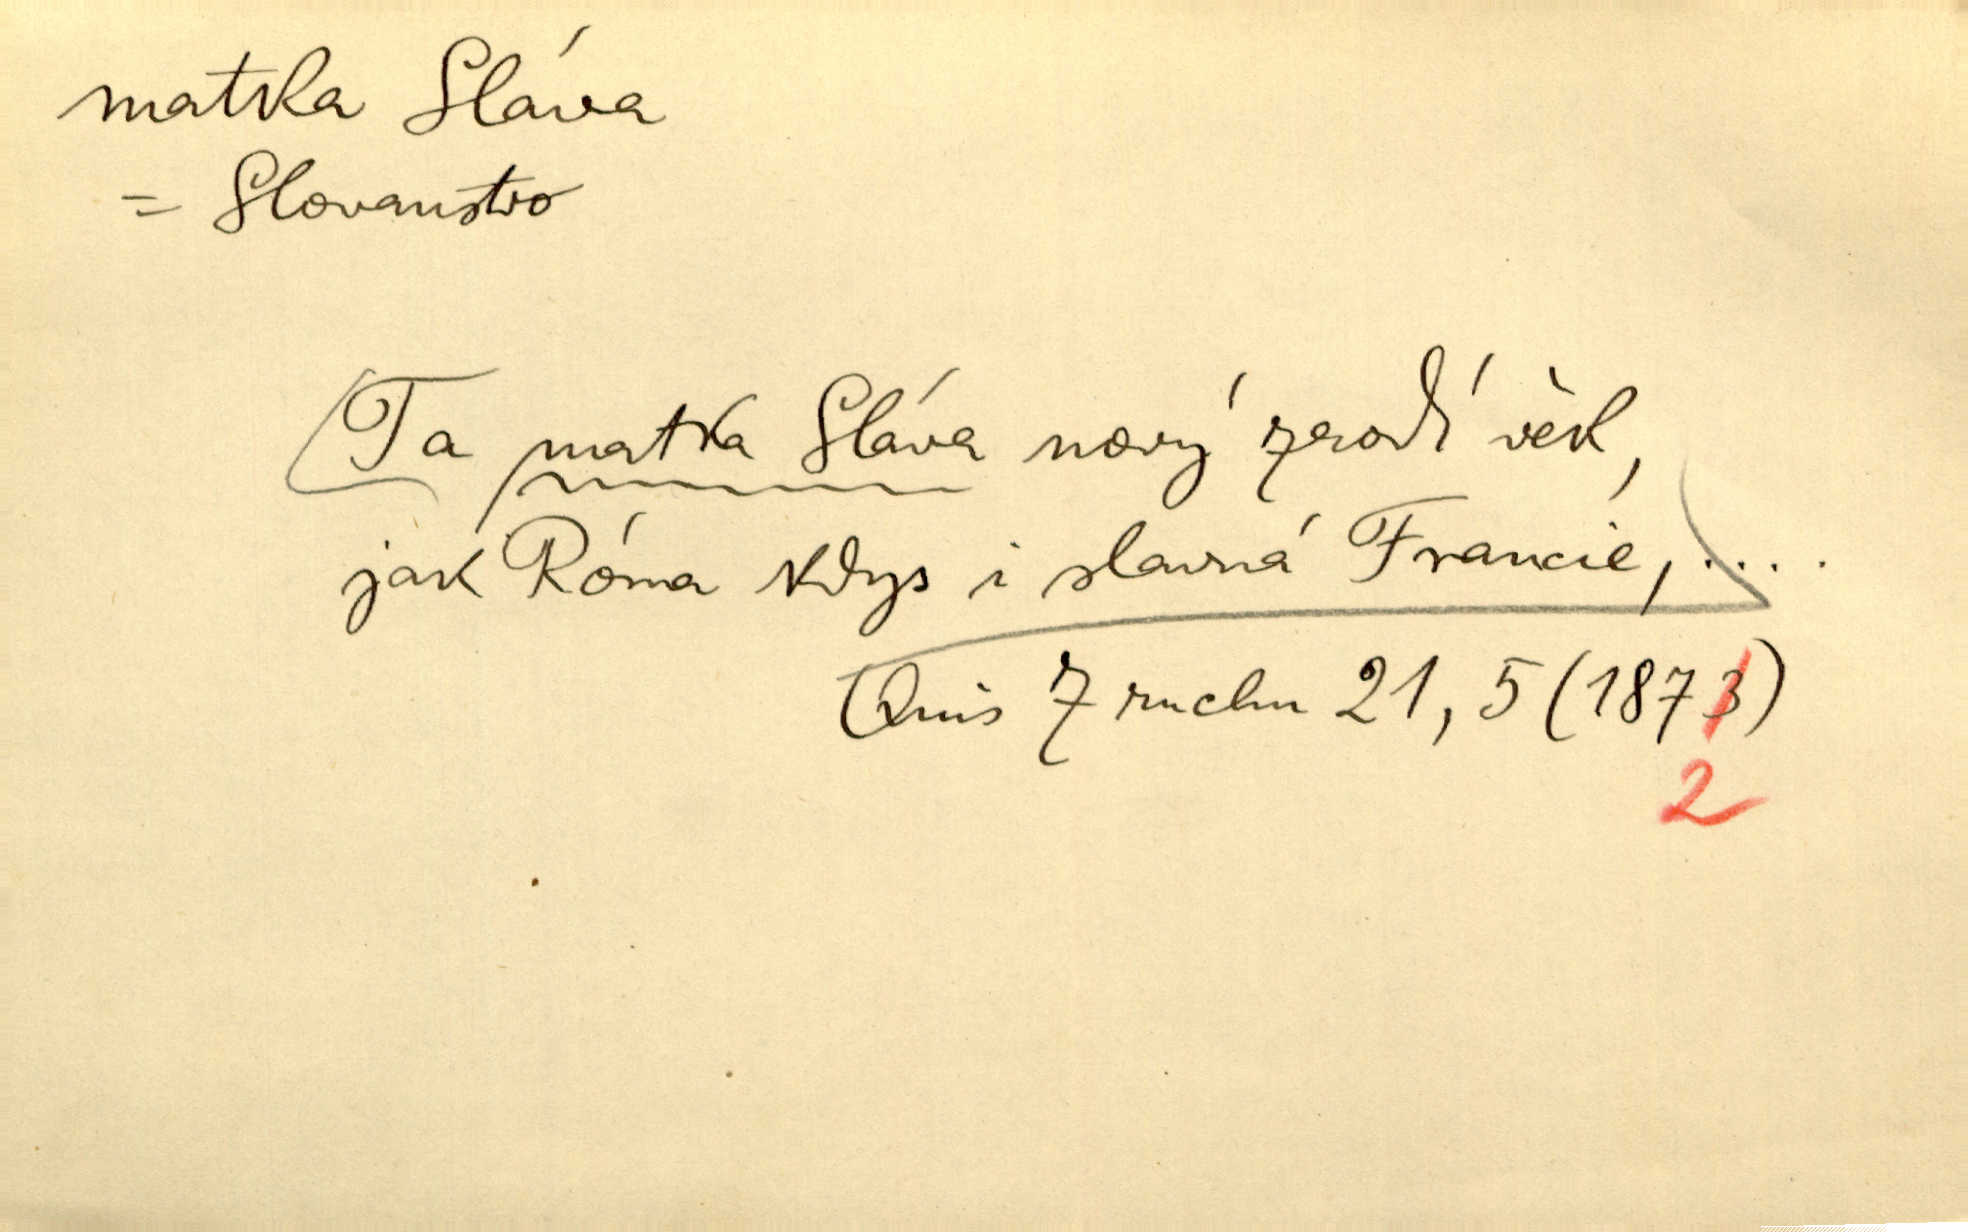 matka Sláva
= Slovanstvo
Ta matka Sláva nový zrodí věk,
jak Róma kdys i slavná Francie, ....
Quis Z ruchu 21, 5 (1873)
2